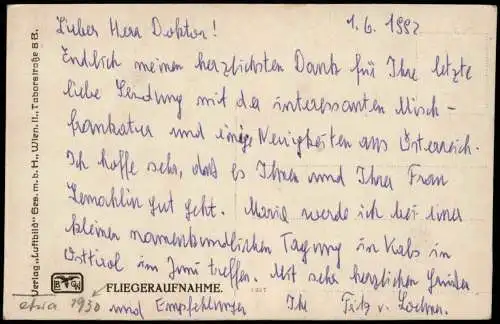 Lieber Herr Doktor! 1.6.1992
Endlich meinen herzlichsten Dank für Ihre letzte
liebe Sendung mit der interessanten Misch-
frankatur und einige Neuigkeiten aus Österreich.
Ich hoffe sehr, daß es Ihnen und Ihrer Frau
Gemahlin gut geht. Maria werde ich bei einer
kleinen namenkundlichen Tagung in Kals in
Osttirol im Juni treffen. Mit sehr herzlichen Grüßen
und Empfehlungen Ihr Fritz v.
Verlag „Luftbild" Ges. m. b. H., Wien, II., Taborstraße 8 B.
FLIEGERAUFNAHME.
1930